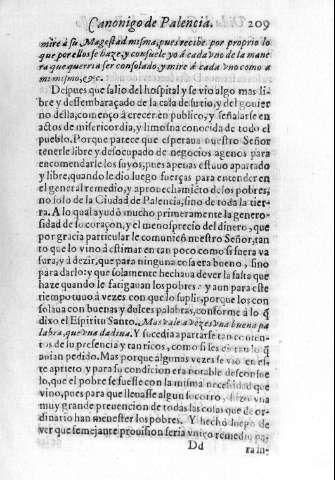 Canonigo de Palencia. 209
mire à su Magestad misma, pues recibe por proprio lo
que por ellos se haze, y consuele yo à cada vno de la mane
ra que querria ser consolado, y mire à cada vno como a
mi mismo, &c.
Despues que salio del hospital y se vio algo mas li-
bre y desembaraçado de la casa de su tio, y del gouier
no della, començo à crecer en publico, y señalarse en
actos de misericordia, y limosna conocida de todo el
pueblo. Porque parece que esperaua nuestro Señor
tenerle libre y desocupado de negocios agenos para
encomendarle los suyos, pues apenas estuuo apartado
y libre, quando le dio luego fuerças para entender en
el general remedio, y aprouechamiẽto de los pobres,
no solo de la Ciudad de Palencia, sino de toda la tier-
ra. A lo qual ayudò mucho primeramente la genero-
sidad de su coraçon, y el menosprecio del dinero, que
por gracia particular le comunicò nuestro Señor, tan
to que lo vino à estimar en tan poco como si fuera va
sura, y à dezir, que para ninguna cosa era bueno, sino
para darlo: y que solamente hechaua de ver la falta que
haze quando le fatigauan los pobres: y aun para este
tiempo tuuo à vezes con que lo suplir, porque los con
solaua con buenas y dulces palabras, conforme à lo q̃
dixo el Espiritu Santo. Mas vale à vezes vna buena pa
labra, que vna dadiua. Y sucedia apartarse tan conten-
tos de su presencia y tan ricos, como si les diera lo q̃
auian pedido. Mas porque algunas vezes se vio en es-
te aprieto, y para su condicion era notable desconsue
lo, que el pobre se fuesse con la misma necessidad que
vino, pues para que lleuasse algun socorro, hizo vna
muy grande preuencion de todas las cosas que de or-
dinario han menester los pobres. Y hecho luego de
ver que semejante prouision seria vnico remedio pa-
Dd ra in-